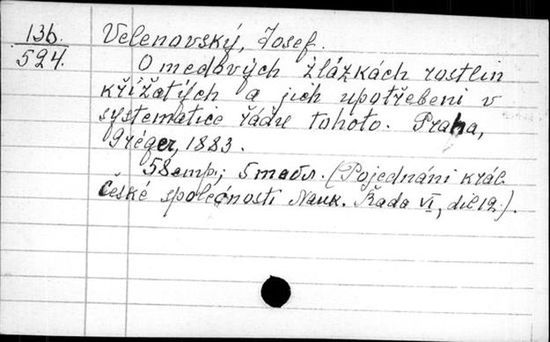 136. Velenovský, Josef.
594. O medových žlázkách rostlin
křížatých a jich upotřebeni v
systematice řádu tohoto. Praha,
Gréger, 1883.
58 стр.; 5 табл. (Pojednáni král.
české společnosti Nauk. Řada VI, díl 12.).